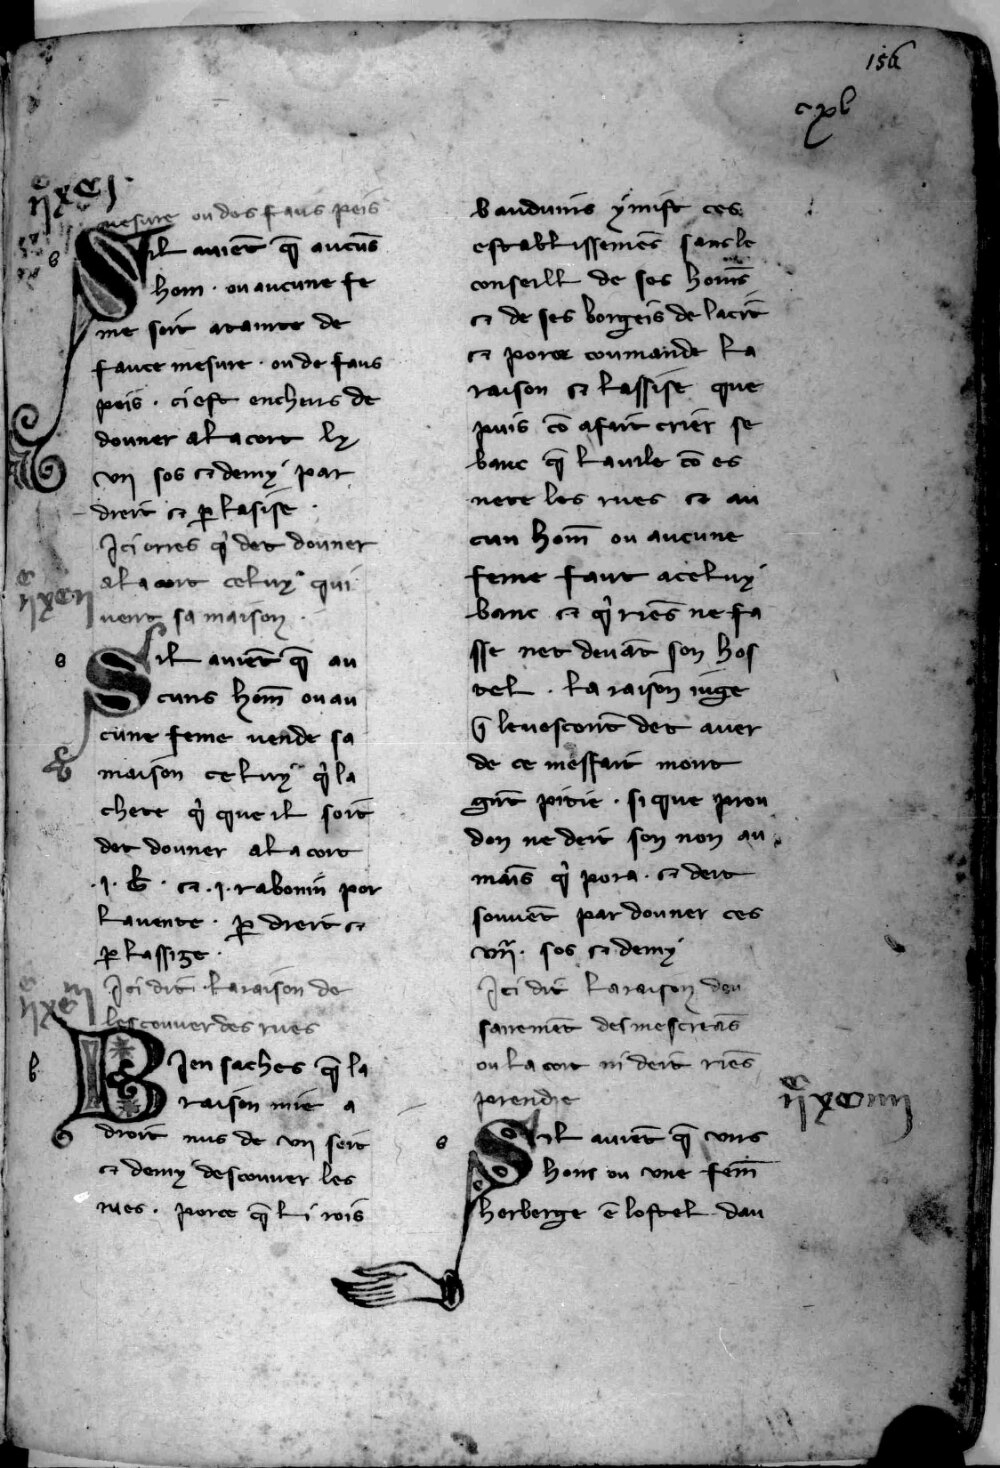 156
cxv
mesure ou des faus peis
Sil auient q̄ aucūs
hom · ou aucune fe
me soit atainte de
fauce mesure · ou de faus
peis · ci est encheus de
douner a la cort lx
vij sos et demy par
dreit et p̄ lasise ·
Ici orres q̍ det douner
a la cort celuy qui
uent sa maison ·
Sil auiēt q̄ au
cuns hom̄ ou au
cune feme uende sa
maison celuy q̍ la
chete q̍ que il soit
det douner a la cort
·j· b̄ · et ·j· rabouin por
la uente · p̄ dreit et
p̄ lassize ·
Ici dit la raison de
lescouuer des rues
Bien saches q̄ la
raison mie a
droit nus de vij seit
et demy descouuer les
rues · porce q̄ li rois
bauduins y mist ces
establissemēs sans le
conseill de ses homēs
et de ses borgeis de la cit
et porce coumande la
raison et lassise que
puis cō a fait crier se
banc q̄ la uile cō es
nete les rues et au
cun hom̄ ou aucune
feme faut a celuy
banc et q̍ riēs ne fa
sse net deuāt son hos
tel · la raison iuge
q̄ le uoscont det auer
de ce mesfait mout
grāt pitie · si que prou
dom ne deit son non au
mais q̍ pora · et deit
souuēt par douner ces
vij · sos et demy
Ici dit la raison dou
sairemēt des mescreās
ou la cort ni deit riēs
prendre
Sil auiēt q̄ vns
hons ou vne fem̄
herberge ē lostel dau